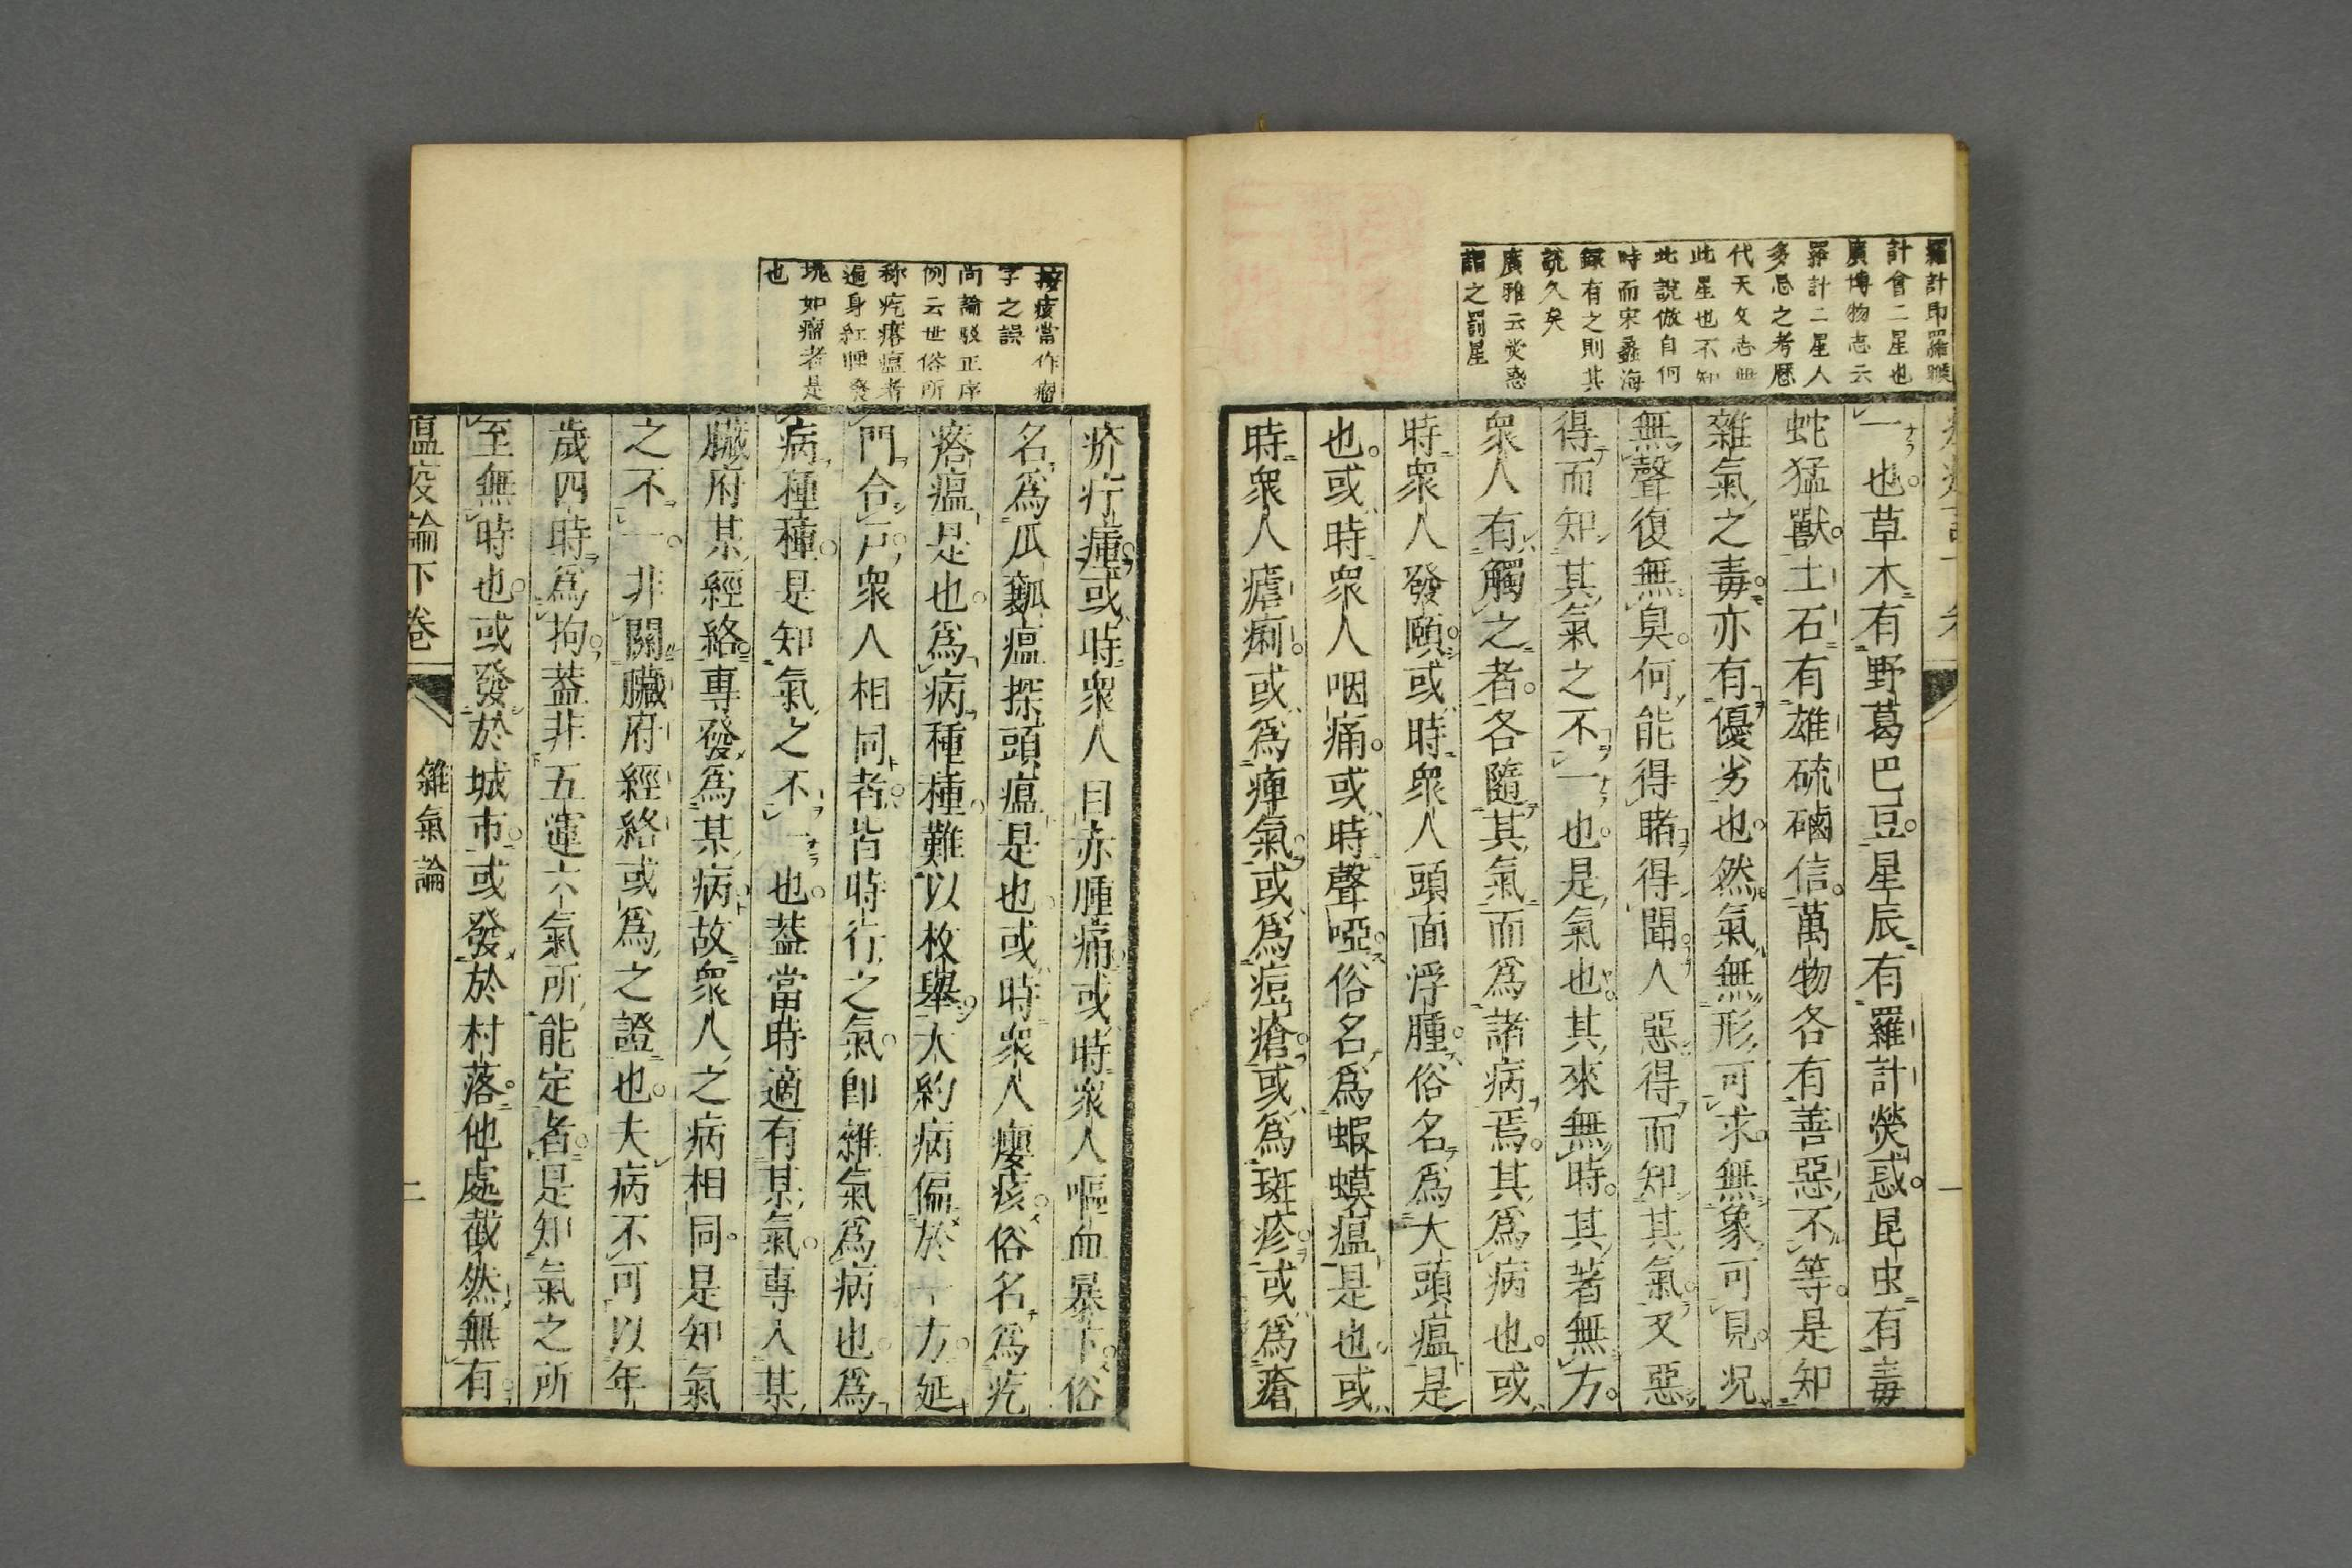 羅計即羅㬋
計會二星也
廣博物志云
羅計二星人
多忌之考歷
代天文志無
此星也不知
此說倣自何
時而宋蠡海
錄有之則其
說久矣
廣雅云熒惑
謂之罰星
一也草木有野葛巴豆星辰有羅計熒惑昆虫有毒
蛇猛獸土石有雄硫硇信萬物各有善惡不等是知
雜氣之毒亦有優劣也然氣無形可求無象可見况
無聲復無臭何能得睹得聞人惡得而知其氣又惡
得而知其氣之不一也是氣也其來無時其著無方
衆人有觸之者各隨其氣而爲諸病焉其爲病也或
時衆人發頤或時衆人頭面浮腫俗名爲大頭瘟是
也或時衆人咽痛或時聲啞俗名爲蝦蟆瘟是也或
時衆人瘧痢或爲痺氣或爲痘瘡或爲斑疹或爲瘡
一
按痎當作瘤
字之誤
尚論駁正序
例云世俗所
称疙瘩瘟者
遍身紅腫發
塊如瘤者是
也
疥疔瘇或時衆人目赤腫痛或時衆人嘔血暴下俗
名爲瓜瓤瘟探頭瘟是也或時衆人癭痎俗名爲疙
瘩瘟是也爲病種種難以枚舉大約病偏於一方延
門合戸衆人相同者皆時行之氣卽雜氣爲病也爲
病種種是知氣之不一也葢當時適有某氣專入某
臟府某經絡專發爲某病故衆人之病相同是知氣
之不一非關臟府經絡或爲之證也夫病不可以年
歲四時爲拘葢非五運六氣所能定者是知氣之所
至無時也或發於城市或發於村落他處截然無有
瘟疫論下卷
雜氣論
二